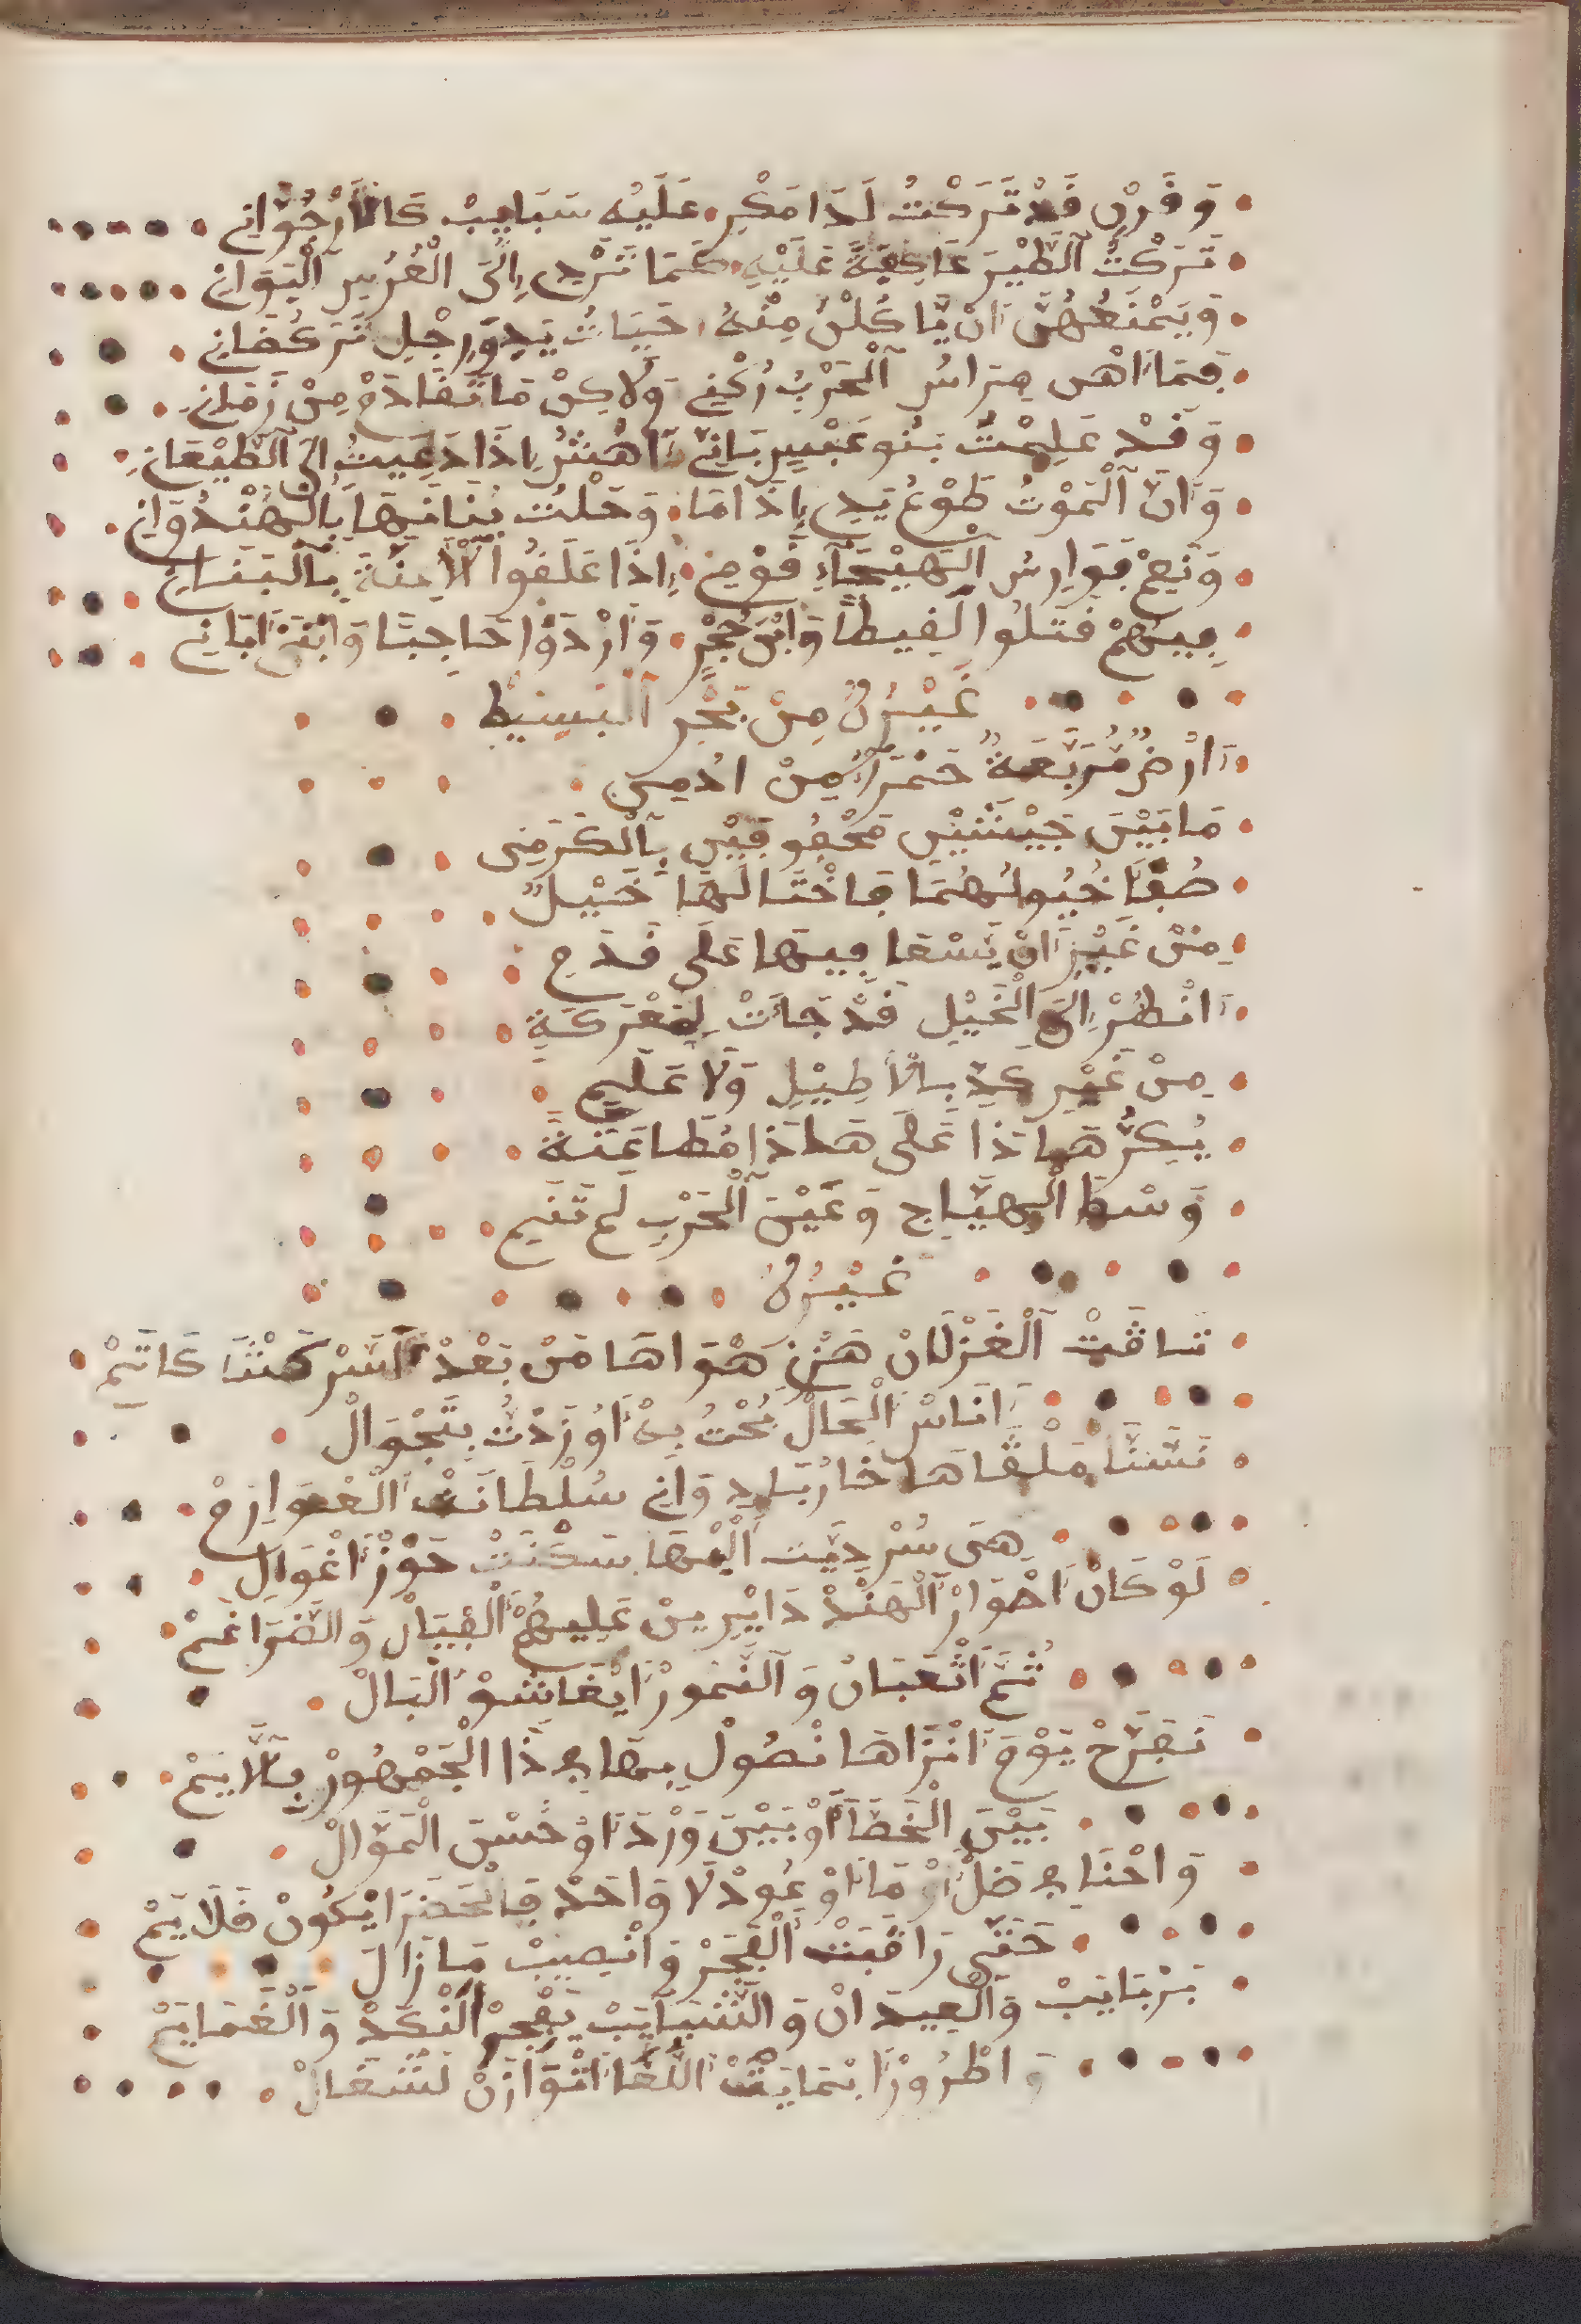 وَفَرْنٍ قَدْ تَرَكْتُ لَدَا مَكْرِ عَلَيْهِ سَبَايِبْ كَالاَرْجُوَانِ
تَرَكْتُ الطَّيْرَ عَاكِفَةً عَلَيْهِ كَمَا تَرْدِي إِلَى الْعُرُسِ الْبَوَانِ
وَيَمْنَعُهُنَّ اَنْ يَّاكُلْنَ مِنْهُ حَيَاتُ يَدٍ وَّرِجْلٍ تَرْكُضَانِ
فَمَا اَوْهَى مِرَاسُ الْحَرْبِ رُكْنِي وَلَاكِنْ مَا تَقَادَمَ مِنْ زَمَانِ
وَقَدْ عَلِمْتْ بَنُو عَبْسٍ بَانِّي اَهُشُّ اِذَا دُعِيتُ اِلَى الطِّيْعَانِ
وَاَنَّ الْمَوْتُ طَوْعُ يَدِي إِذَا مَا وَصَلْتُ بَنَانَهَا بِالْهِنْدُوَانِ
وَنِعْمَ فَوَارِسُ الْهَيْجَآءِ قَوْمِي إِذَا عَلَقُوا الْاَعِنَّةَ بِالْبَنَانِ
فِيهُمْ قَتَلُوا لَقِيطًا وَابْنَ حُجْرٍ وَاَرْدَوْا حَاجِبًا وَابْنَيْ اَبَانِ
غَيْرُهُ مِنْ بَحْرِ الْبَسِيطْ
اَرْضٌ مُّرَبَّعَةٌ حَمْرَآءُ مِنْ اَدُمِي
مَا بَيْنَ جَيْشَيْنِ مَحْفُوفَيْنِ بِالْكَرَمِي
صُفَّا خُيُولُهُمَا فَاخْتَالَهَا خَيْلٌ
مِنْ غَيْرِ اَنْ يَسْعَا فِيهَا عَلَى قَدَمِ
اَنْظُرْ اِلَى الْخَيْلِ قَدْ جَاَتْ لِمَعْرَكَةِ
مِنْ غَيْرِ كَدٍّ بِالاَطِيْلِ وَلَا عَلَمِ
يُكِرُّ هَاذَا عَلَى هَاذَا مُطَاعَنَةً
وَسْطَ الْهِيَّاجِ وَعَيْنَ الْحَرْبِ لَمْ تَنَمِ
غَيْرُهُ
شَاقَتْ الْغَزْلَانْ هَزْنِي هَوَاهَا مَنْ بَعْدْ السَّرْ كَنْتَ كَاتَمْ
اَنَاسْ الْحَالْ بُحْتُ بِهْ اَوُ زَدْتُ بِتَجْوَالْ
نَتْمَنَّا مَلْقَاهَا خَارْ بَلِدِ وَانِ سُلْطَانَتْ الْعْوَارَمْ
هِيَ سُرْدِيَّتْ الْمْهَا سَكْنَتْ حَوْزْ اَغْوَالِ
لَوْ كَانْ اَحْوَازْ الْهَنْدْ دَايْرِينْ عَلِيهُمْ الْفْيَالْ وَالضَّرَاغَمْ
ثُمَّ اَثْعَبَانْ وَالنَّمُورْ اَيْغَاشَوْ الْبَالْ
نَفْرَحْ يَوْمَ اَنْرَاهَا نْصُولْ بِهَا فِ ذَا الْجَمْهُورْ بَلَّايَمْ
بَيْنَ الْخَصَّا اَوْ بَيْنَ وَرْدَ اَوْ حُسْنَ الْمَوَّالْ
وَاحْنَا فِ ضَلْ اَوْ مَا اَوْ عُودْ لَا وَاحَدْ فَالْحَضْرَا يْكُونْ فَلَايَمْ
حَتَّى رَاقَبَتْ الْفْجَرْ وَانْصِيبْ مَازَالَ
بَرْبَايَبْ وَالْعِيدَانْ وَالشّْبَايَبْ يَفْجِ النَّكَدْ وَالْغَمَايَمْ
وَاطْرُوزْ اَبْمَايَتْ اللُّغَا اَتْوَازَنْ لَشْغَالْ